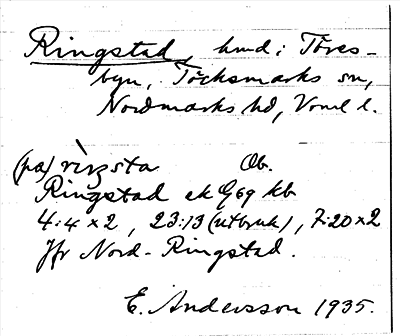 Ringstad, hmd i Töres-
byn, Töcksmarks sn,
Nordmarks hd, Vrml l.
(på) rìŋsta Ob.
Ringstad ek G69 kb
4:4 x 2, 23:13 (utbruk), 7:20 x 2
Jfr Nord-Ringstad.
E. Andersson 1935.